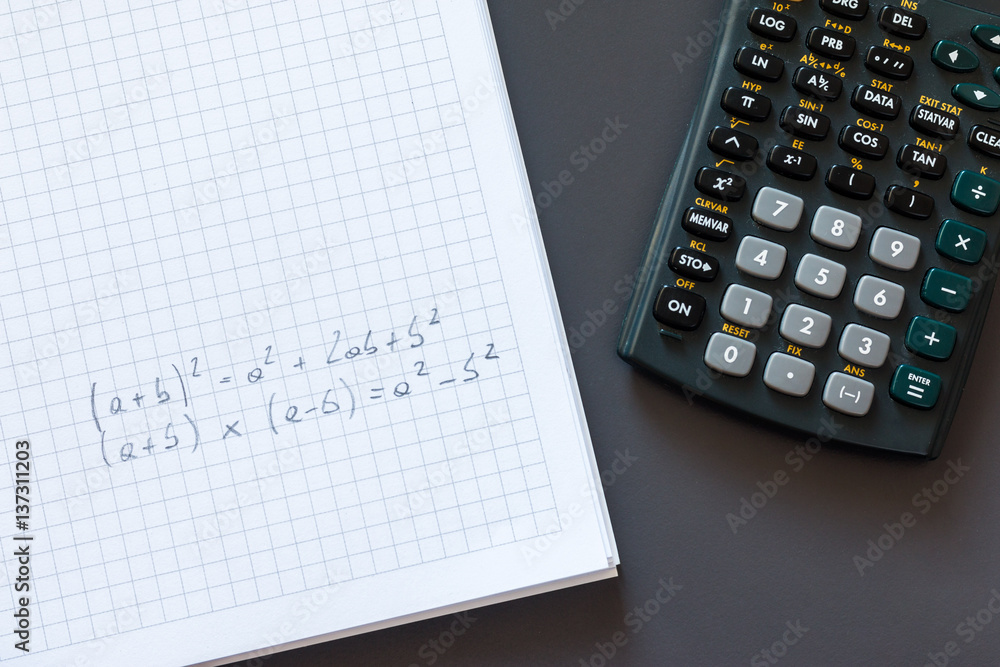 (a+b)² = a² + 2ab + b²
(a+b) × (a-b) = a² - b²
DRG
INS
DEL
10ˣ
LOG
F◄►D
PRB
R◄►P
° ' "
eˣ
LN
Ab/c◄►d/e
Ab/c
STAT
DATA
EXIT STAT
STATVAR
HYP
π
SIN-1
SIN
COS-1
COS
TAN-1
TAN
CLEA
ˣ√
^
EE
x-1
%
(
,
)
K
÷
√
x²
7
8
9
×
CLRVAR
MEMVAR
4
5
6
−
RCL
STO▶
1
2
3
+
OFF
ON
RESET
0
FIX
.
ANS
(−)
ENTER
=
Adobe Stock | #137311203